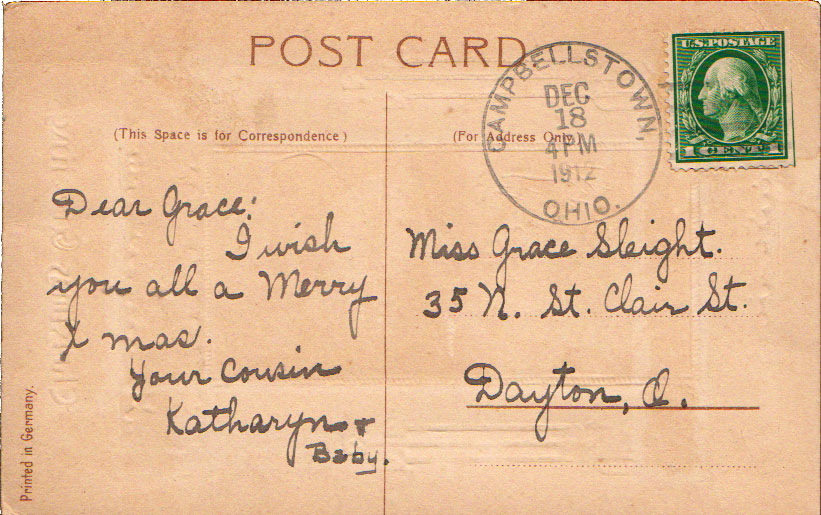 POST CARD
(This Space is for Correspondence)
(For Address Only)
CAMPBELLSTOWN,
DEC
18
4 PM
1912
OHIO.
U.S. POSTAGE
1 CENT 1
Dear Grace:
I wish
you all a Merry
X mas.
Your cousin
Katharyn &
Baby.
Miss Grace Sleight.
35 N. St. Clair St.
Dayton, O.
Printed in Germany.